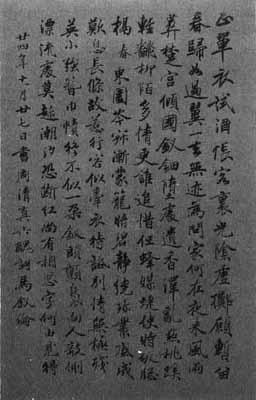 正單衣試酒悵客裏光陰虛擲願暫留
春歸如過翼一去無迹為問家何在夜來風雨
葬楚宮傾國釵鈿墮處遺香澤亂點桃蹊
輕翻柳陌多情更誰追惜但蜂媒蝶使時叩窗
槅東園岑寂漸蒙籠暗碧靜繞珍叢底成
歎息長條故惹行客似牽衣待話別情無極殘
英小強簪巾幘終不似一朵釵頭顫裊向人欹側
漂流處莫趁潮汐恐斷紅尚有相思字何由見得
廿四年十月廿七日書周清真六醜詞馬叙倫